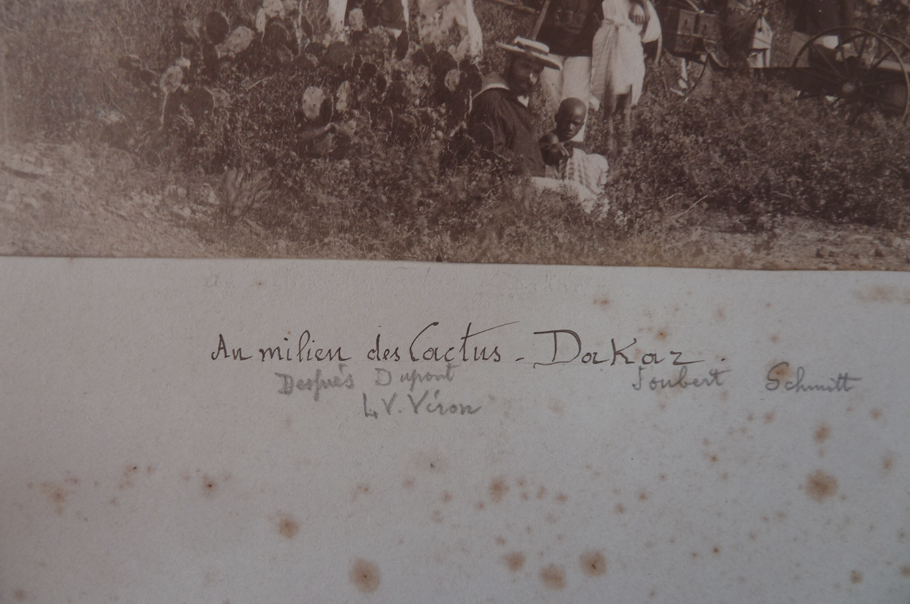 Au milieu des Cactus - Dakar.
Després Dupont Joubert Schmitt
L. V. Véron